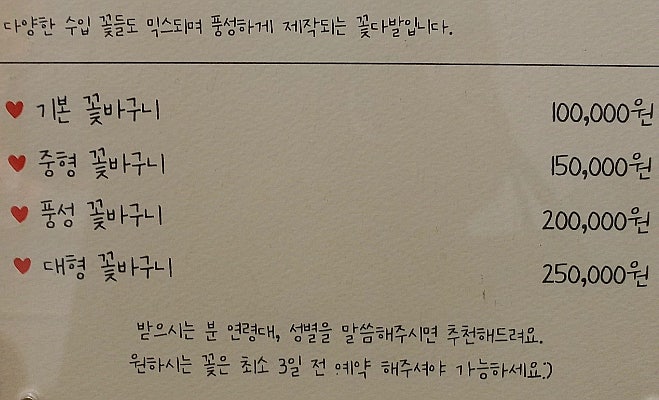 다양한 수입 꽃들도 믹스되며 풍성하게 제작되는 꽃다발입니다.
♥ 기본 꽃바구니 100,000원
♥ 중형 꽃바구니 150,000원
♥ 풍성 꽃바구니 200,000원
♥ 대형 꽃바구니 250,000원
받으시는 분 연령대, 성별을 말씀해주시면 추천해드려요.
원하시는 꽃은 최소 3일 전 예약 해주셔야 가능하세요:)